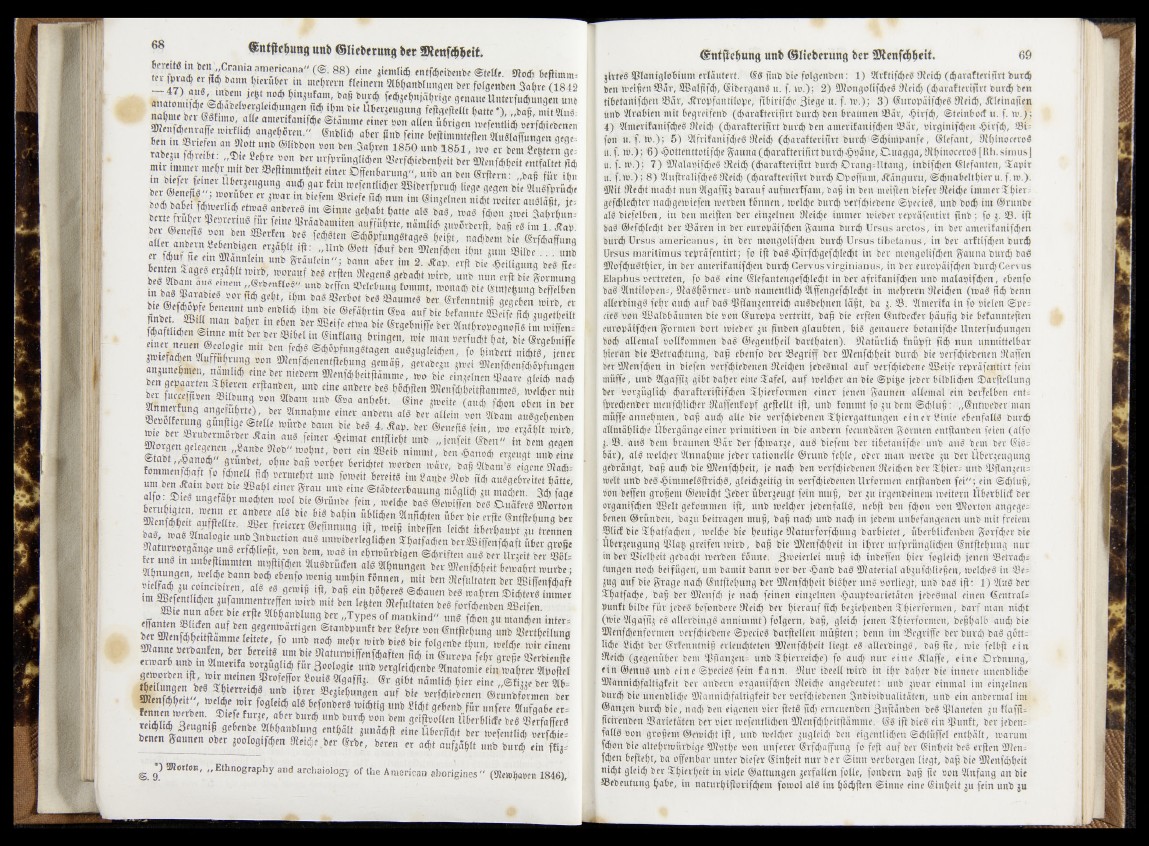 68 Entstehung und Gliederung der Menschheit.
bereits in den „Crania americana" (S. 88) eine ziemlich entscheidende Stelle. Noch bestimm=
ter sprach er sich dann hierüber in mehrern kleinern Abhandlungen der folgenden Jahre (1842
— 47) aus, indem jetzt noch hinzukam, daß durch sechzehnjährige genaue Untersuchungen und
anatomische Schädelvergleichungen sich ihm die Überzeugung festgestellt hatte*), „daß, mit Aus=
nahme der Eskimo, alle amerikanische Stämme einer von allen übrigen wesentlich verschiedenen
Menschenrasse wirklich angehören." Endlich aber sind seine bestimmtesten Auslassungen gege=
ben in Briefen an Nott und Gliddon von den Jahren 1850 und 1851, wo er dem Letztern ge=
radezu schreibt: „Die Lehre von der ursprünglichen Verschiedenheit der Menschheit entfaltet sich
mir immer mehr mit der Bestimmtheit einer Offenbarung", und an den Erstern: „daß für ihn
in dieser seiner Überzeugung auch gar kein wesentlicher Widerspruch liege gegen die Aussprüche
der Genesis"; worüber er zwar in diesem Briefe sich nun im Einzelnen nicht weiter ausläßt, je=
doch dabei schwerlich etwas anderes im Sinne gehabt hatte als das, was schon zwei Jahrhun=
derte früher Peyrerius für seine Präadamiten aufführte, nämlich zuvörderst, daß es im 1. Kap.
der Genesis von den Werken des sechsten Schöpfungstages heißt, nachdem die Erschaffung
aller andern Lebendigen erzählt ist: „Und Gott schuf den Menschen ihm zum Bilde ... und
er schuf sie ein Männlein und Fräulein"; dann aber im 2. Kap. erst die Heiligung des sie=
benten Tages erzählt wird, worauf des ersten Regens gedacht wird, und nun erst die Formung
des Adam aus einem „Erdenklos" und dessen Belebung kommt, wonach die Einsetzung desselben
in das Paradies vor sich geht, ihm das Verbot des Baumes der Erkenntniß gegeben wird, er
die Geschöpfe benennt und endlich ihm die Gefährtin Eva auf die bekannte Weise sich zugetheilt
findet. Will man daher in eben der Weise etwa die Ergebnisse der Anthropognosis im wissen=
schaftlichen Sinne mit der der Bibel in Einklang bringen, wie man versucht hat, die Ergebnisse
einer neuen Geologie mit den sechs Schöpfungstagen auszugleichen, so hindert nichts, jener
zwiefachen Aufführung von Menschenentstehung gemäß, geradezu zwei Menschenschöpfungen
anzunehmen, nämlich eine der niedern Menschheitstämme, wo die einzelnen Paare gleich nach
den gepaarten Thieren erstanden, und eine andere des höchsten Menschheitstammes, welcher mit
der successiven Bildung von Adam und Eva anhebt. Eine zweite (auch schon oben in der
Anmerkung angeführte), der Annahme einer andern als der allein von Adam ausgehenden
Bevölkerung günstige Stelle würde dann die des 4. Kap. der Genesis sein, wo erzählt wird,
wie der Brudermörder Kain aus seiner Heimat entflieht und „jenseit Eden" in dem gegen
Morgen gelegenen „Lande Nod" wohnt, dort ein Weib nimmt, den Hanoch erzeugt und eine
Stadt „Hanoch" gründet, ohne daß vorher berichtet worden wäre, daß Adam's eigene Nach=
kommenschaft so schnell sich vermehrt und soweit bereits im Lande Nod sich ausgebreitet hätte,
um den Kain dort die Wahl einer Frau und eine Städteerbauung möglich zu machen. Ich sage
also: Dies ungefähr mochten wol die Gründe sein, welche das Gewissen des Quäkers Morton
beruhigten, wenn er andere als die bis dahin üblichen Ansichten über die erste Entstehung der
Menschheit aufstellte. Wer freierer Gesinnung ist, weiß indessen leicht überhaupt zu trennen
das, was Analogie und Induction aus unwiderleglichen Thatsachen der Wissenschaft über große
Naturvorgänge uns erschließt, von dem, was in ehrwürdigen Schriften aus der Urzeit der Völ=
ker uns in unbestimmten mystischen Ausdrücken als Ahnungen der Menschheit bewahrt wurde;
Ahnungen, welche dann doch ebenso wenig umhin können, mit den Resultaten der Wissenschaft
vielfach zu coincidiren, als es gewiß ist, daß ein höheres Schauen des wahren Dichters immer
im Wesentlichen zusammentreffen wird mit den letzten Resultaten des forschenden Weisen.
Wie nun aber die erste Abhandlung der „Types of mankind" uns schon zu manchen inter=
essanten Blicken auf den gegenwärtigen Standpunkt der Lehre von Entstehung und Vertheilung
der Menschheitstämme leitete, so und noch mehr wird dies die folgende thun, welche wir einem
Manne verdanken, der bereits um die Naturwissenschaften sich in Europa sehr große Verdienste
erwarb und in Amerika vorzüglich für Zoologie und vergleichende Anatomie ein wahrer Apostel
geworden ist, wir meinen Professor Louis Agassiz. Er gibt nämlich hier eine „Skizze der Ab=
theilungen des Thierreichs und ihrer Beziehungen auf die verschiedenen Grundformen der
Menschheit", welche wir sogleich als besonders wichtig und Licht gebend für unsere Aufgabe er=
kennen werden. Diese kurze, aber durch und durch von dem geistvollen Überblicke des Verfassers
reichlich Zeugniß gebende Abhandlung enthält zunächst eine Übersicht der wesentlich verschie=
denen Faunen oder zoologischen Reiche der Erde, deren er acht aufzählt und durch ein skiz=
*) Morton, „Ethnography and archaiology of the American aborigines" (Newhaven 1846),
S. 9.
Entstehung und Gliederung der Menschheit. 69
zirtes Planiglobium erläutert. Es sind die folgenden: 1) Arktisches Reich (charakterisirt durch
den weißen Bär, Walfisch, Eidergans u. s. w.); 2) Mongolisches Reich (charakterisirt durch den
tibetanischen Bär, Kropfantilope, sibirische Ziege u. s. w.); 3) Europäisches Reich, Kleinasien
und Arabien mit begreifend (charakterisirt durch den braunen Bär, Hirsch, Steinbock u. s. w.);
4) Amerikanisches Reich (charakterisirt durch den amerikanischen Bär, virginischen Hirsch, Bi=
son u. s. w.); 5) Afrikanisches Reich (charakterisirt durch Schimpanse, Elefant, Rhinoceros
u. s. w.); 6) Hottentotische Fauna (charakterisirt durch Hyäne, Quagga, Rhinoceros [Rh. simus]
u. s. w.); 7) Malayisches Reich (charakterisirt durch Orang-Utang, indischen Elefanten, Tapir
u. s. w.); 8) Australisches Reich (charakterisirt durch Opossum, Känguru, Schnabelthier u. s. w.).
Mit Recht macht nun Agassiz darauf aufmerksam, daß in den meisten dieser Reiche immer Thier=
geschlechter nachgewiesen werden können, welche durch verschiedene Species, und doch im Grunde
als dieselben, in den meisten der einzelnen Reiche immer wieder repräsentirt sind; so z. B. ist
das Geschlecht der Bären in der europäischen Fauna durch Ursus arctos, in der amerikanischen
durch Ursus americanus, in der mongolischen durch Ursus tibetanus, in der arktischen durch
Ursus maritimus repräsentirt; so ist das Hirschgeschlecht in der mongolischen Fauna durch das
Moschusthier, in der amerikanischen durch Cervus virginianus, in der europäischen durch Cervus
Elaphus vertreten, so das eine Elefantengeschlecht in der afrikanischen und malayischen, ebenso
das Antilopen=, Nashörner= und namentlich Affengeschlecht in mehreren Reichen (was sich denn
allerdings sehr auch auf das Pflanzenreich ausdehnen läßt, da z. B. Amerika in so vielen Spe=
cies von Waldbäumen die von Europa vertritt, daß die ersten Entdecker häufig die bekanntesten
europäischen Formen dort wieder zu finden glaubten, bis genauere botanische Untersuchungen
doch allemal vollkommen das Gegentheil darthaten). Natürlich knüpft sich nun unmittelbar
hieran die Betrachtung, daß ebenso der Begriff der Menschheit durch die verschiedenen Rassen
der Menschen in diesen verschiedenen Reichen jedesmal auf verschiedene Weise repräsentirt sein
müsse, und Agassiz gibt daher eine Tafel, auf welcher an die Spitze jeder bildlichen Darstellung
der vorzüglich charakteristischen Thierformen einer jenen Faunen allemal ein derselben ent=
sprechender menschlicher Rassenkopf gestellt ist, und kommt so zu dem Schluß: „Entweder man
müsse annehmen, daß auch alle die verschiedenen Thiergattungen einer Linie ebenfalls durch
allmähliche Übergänge einer primitiven in die andern secundären Formen entstanden seien (also
z. B. aus dem braunen Bär der schwarze, aus diesem der tibetanische und aus dem der Eis=
bär), als welcher Annahme jeder rationelle Grund fehle, oder man werde zu der Überzeugung
gedrängt, daß auch die Menschheit, je nach den verschiedenen Reichen der Thier= und Pflanzen=
welt und des Himmelsstrichs, gleichzeitig in verschiedenen Urformen entstanden sei"; ein Schluß,
von dessen großem Gewicht Jeder überzeugt sein muß, der zu irgendeinem weitern Überblick der
organischen Welt gekommen ist, und welcher jedenfalls, nebst den schon von Morton angege=
benen Gründen, dazu beitragen muß, daß nach und nach in jedem unbefangenen und mit freiem
Blick die Thatsachen, welche die heutige Naturforschung darbietet, überblickenden Forscher die
Überzeugung Platz greifen wird, daß die Menschheit in ihrer ursprünglichen Entstehung nur
in der Vielheit gedacht werden könne. Zweierlei muß ich indessen hier sogleich jenen Betrach=
tungen noch beifügen, um damit dann vor der Hand das Material abzuschließen, welches in Be=
zug auf die Frage nach Entstehung der Menschheit bisher uns vorliegt, und das ist: 1) Aus der
Thatsache, daß der Mensch je nach seinen einzelnen Hauptvarietäten jedesmal einen Central=
punkt bilde für jedes besondere Reich der hierauf sich beziehenden Thierformen, darf man nicht
(wie Agassiz es allerdings annimmt) folgern, daß, gleich jenen Thierformen, deßhalb auch die
Menschenformen verschiedene Species darstellen müßten; denn im Begriffe der durch das gött=
liche Licht der Erkenntniß erleuchteten Menschheit liegt es allerdings, daß sie, wie selbst ein
Reich (gegenüber dem Pflanzen= und Thierreiche) so auch nur eine Klasse, eine Ordnung,
ein Genus und eine Species sein kann. Nur ideell wird in ihr daher die innere unendliche
Mannichfaltigkeit der andern organischen Reiche angedeutet: und zwar einmal im einzelnen
durch die unendliche Mannichfaltigkeit der verschiedenen Individualitäten, und ein andermal im
Ganzen durch die, nach den eigenen vier stets sich erneuenden Zuständen des Planeten zu klassi=
ficirenden Varietäten der vier wesentlichen Menschheitstämme. Es ist dies ein Punkt, der jeden=
falls von großem Gewicht ist, und welcher zugleich den eigentlichen Schlüssel enthält, warum
schon die altehrwürdige Mythe von unserer Erschaffung so fest auf der Einheit des ersten Men=
schen besteht, da offenbar unter dieser Einheit nur der Sinn verborgen liegt, daß die Menschheit
nicht gleich der Thierheit in viele Gattungen zerfallen solle, sondern daß sie von Anfang an die
Bedeutung habe, in naturhistorischem sowol als im höchsten Sinne eine Einheit zu sein und zu